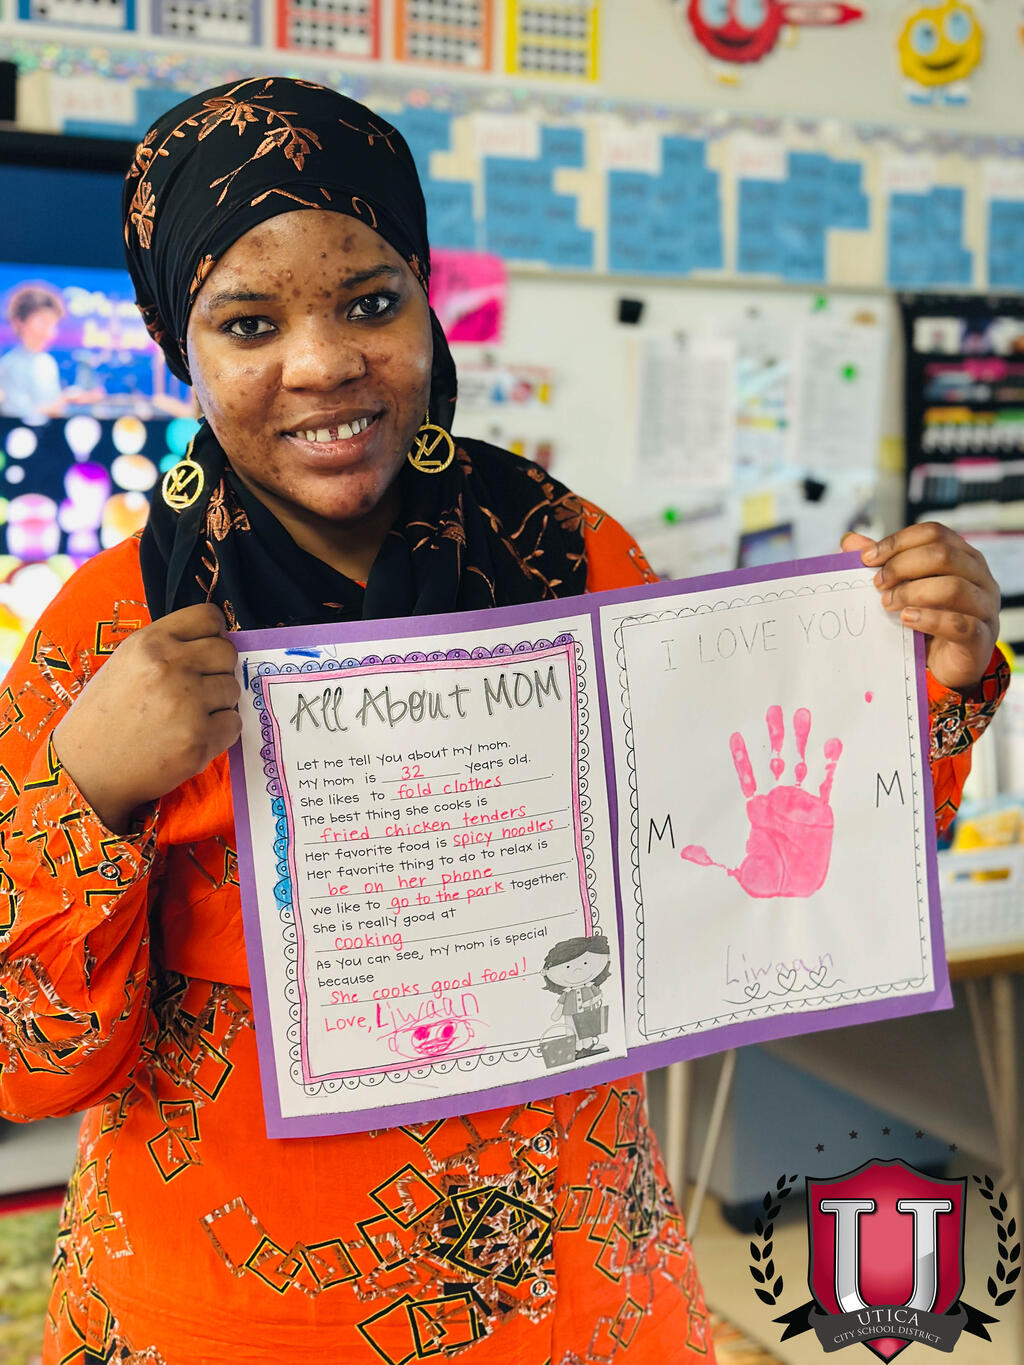 All About MOM
Let me tell you about my mom.
My mom is 32 years old.
She likes to fold clothes.
The best thing she cooks is
fried chicken tenders.
Her favorite food is spicy noodles
Her favorite thing to do to relax is
be on her phone.
We like to go to the park together.
She is really good at
cooking.
As you can see, my mom is special
because
she cooks good food!
Love, Liwaan
I LOVE YOU
M
M
Liwaan
U
UTICA
CITY SCHOOL DISTRICT